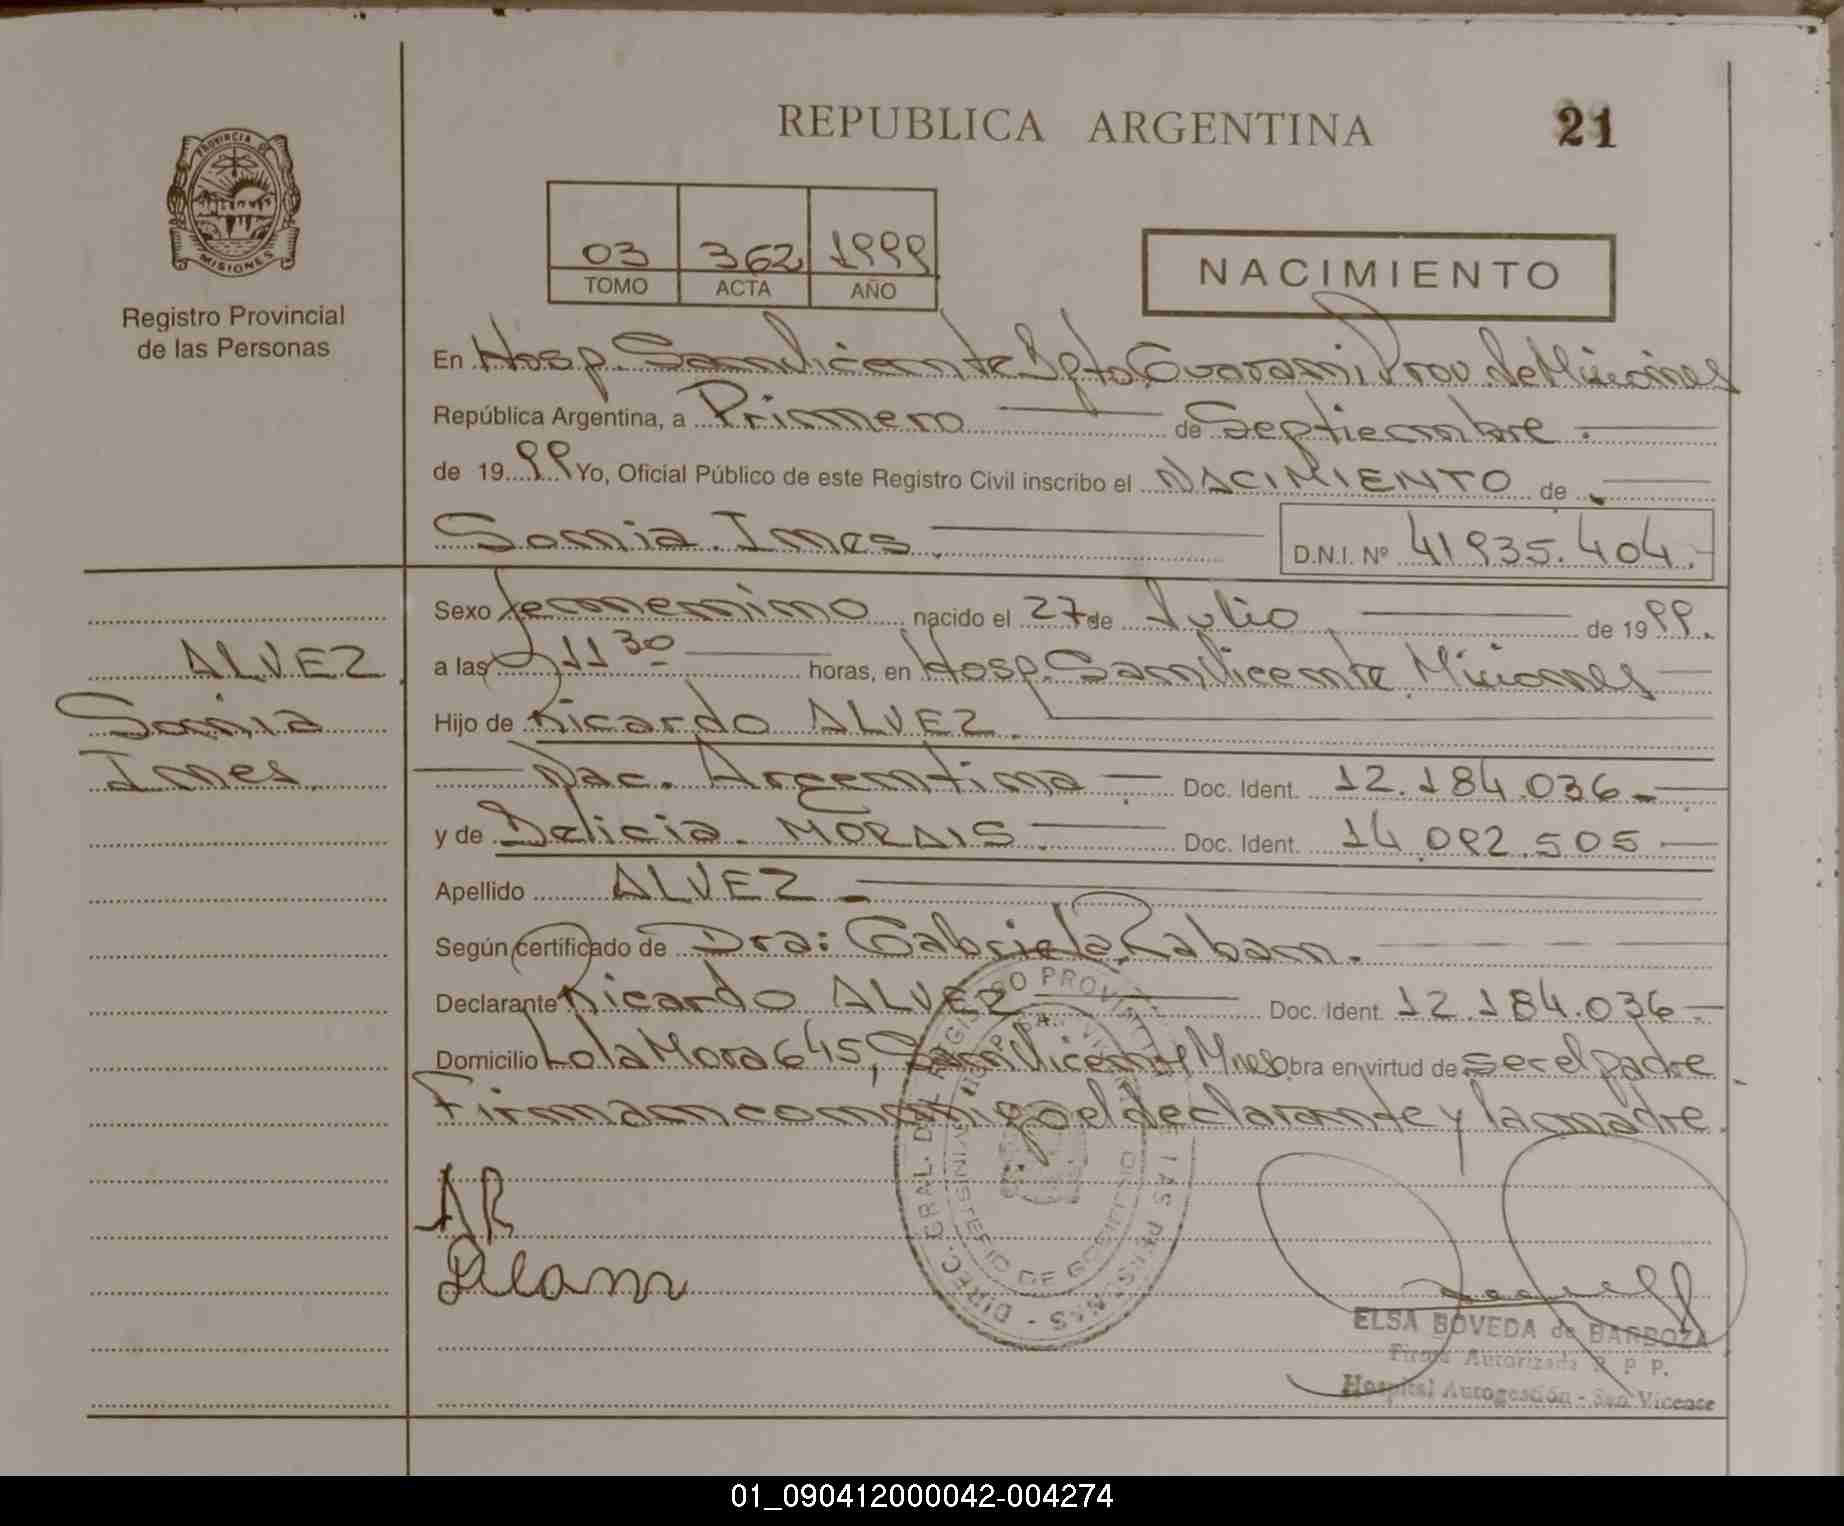 REPUBLICA ARGENTINA
21
PROVINCIA DE
MISIONES
Registro Provincial
de las Personas
03 362 1999
TOMO ACTA AÑO
NACIMIENTO
En Hosp. San Vicente Dpto Guarani, Prov. de Misiones
República Argentina, a Primero de Septiembre.
de 1999 Yo, Oficial Público de este Registro Civil inscribo el NACIMIENTO de
Sonia Ines. D.N.I. Nº 41935.404.
Sexo femenino nacido el 27 de Julio de 1999.
a las 11 30 horas, en Hosp. San Vicente Misiones
Hijo de Ricardo ALVEZ.
Nac. Argentina Doc. Ident. 12.184.036
y de Delicia MORAIS Doc. Ident. 14.092.505
Apellido ALVEZ
Según certificado de Dra: Gabriela Raban.
Declarante Ricardo ALVEZ Doc. Ident. 12.184.036
Domicilio Lola Mora 645, San Vicente Mnes Obra en virtud de ser el padre
Firman conmigo el declarante y la madre.
ALVEZ
Sonia
Ines
AR
ELSA BOVEDA de BARBOZA
Firma Autorizada R. P. P.
Hospital Autogestión - San Vicente
01_090412000042-004274